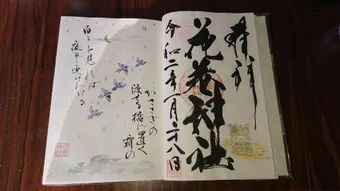 奉拝
花巻神社
令和二年一月二八日
かささぎの
渡せる橋に置く霜の
白きを見れば
夜ぞ更けにける